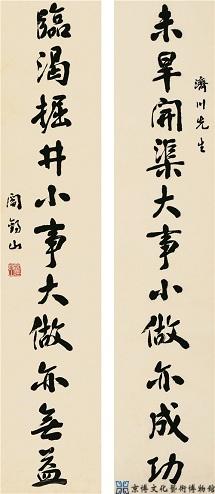 濟川先生
未旱開渠大事小做亦成功
臨渴掘井小事大做亦無益
閻錫山
京博文化藝術博物館